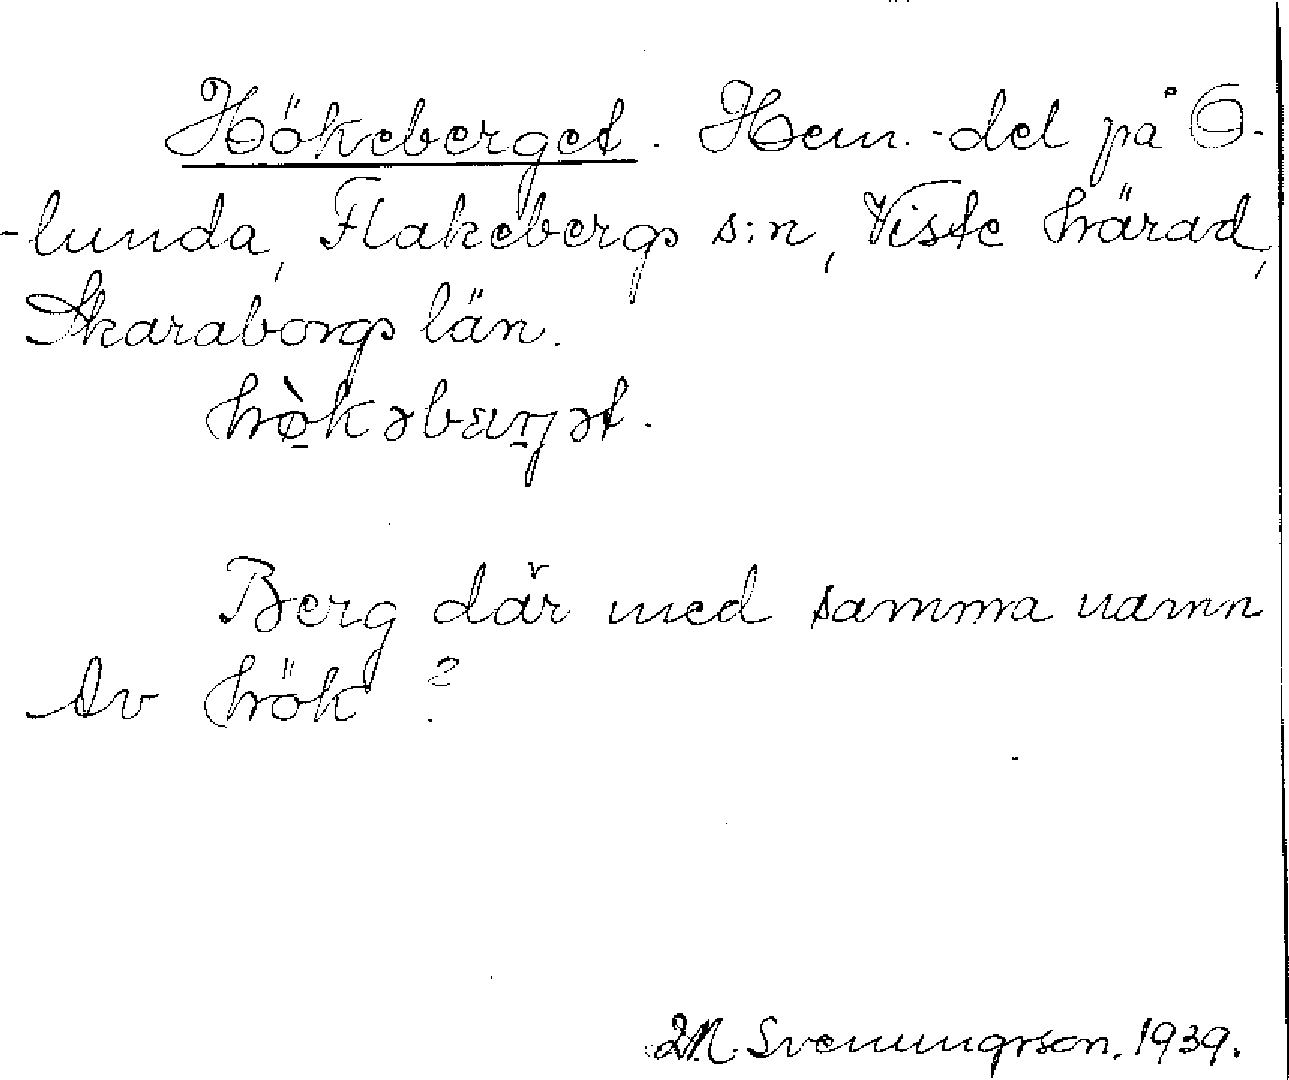 Hökeberget. Hem.-del på O-
-lunda, Flakebergs s:n, Viste härad,
Skaraborgs län.
Berg där med samma namn
Av hök?
M. Svenungsson. 1939.